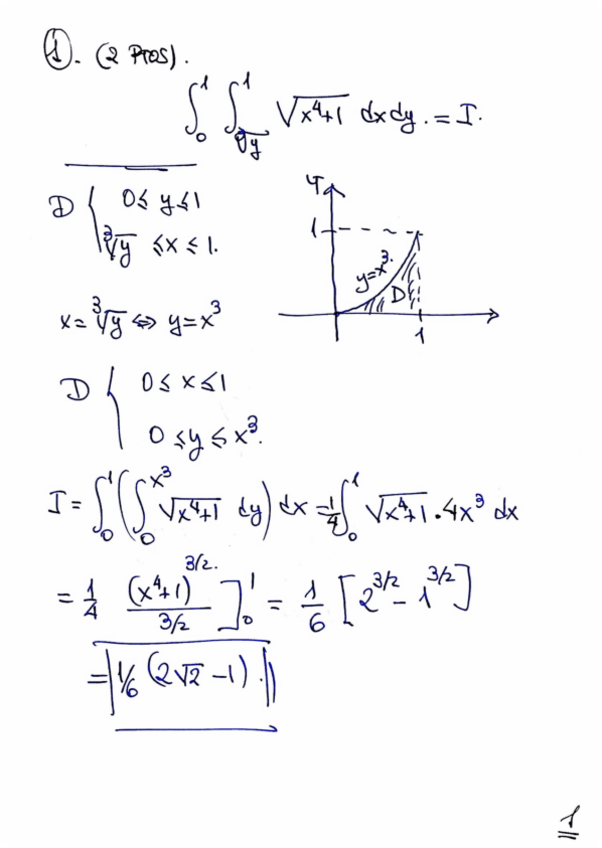 ①. (2 Ptos).
∫₀¹ ∫_{∛y}^1 √(x⁴+1) dx dy. = I.
D { 0 ≤ y ≤ 1
∛y ≤ x ≤ 1.
Y
1
y=x³.
D
1
x = ∛y ⇔ y = x³
D { 0 ≤ x ≤ 1
0 ≤ y ≤ x³.
I = ∫₀¹ (∫₀^{x³} √(x⁴+1) dy) dx = 1/4 ∫₀¹ √(x⁴+1) · 4x³ dx
= 1/4 (x⁴+1)^{3/2}. / 3/2 ]₀¹ = 1/6 [2^{3/2} - 1^{3/2}]
= 1/6 (2√2 - 1).
1